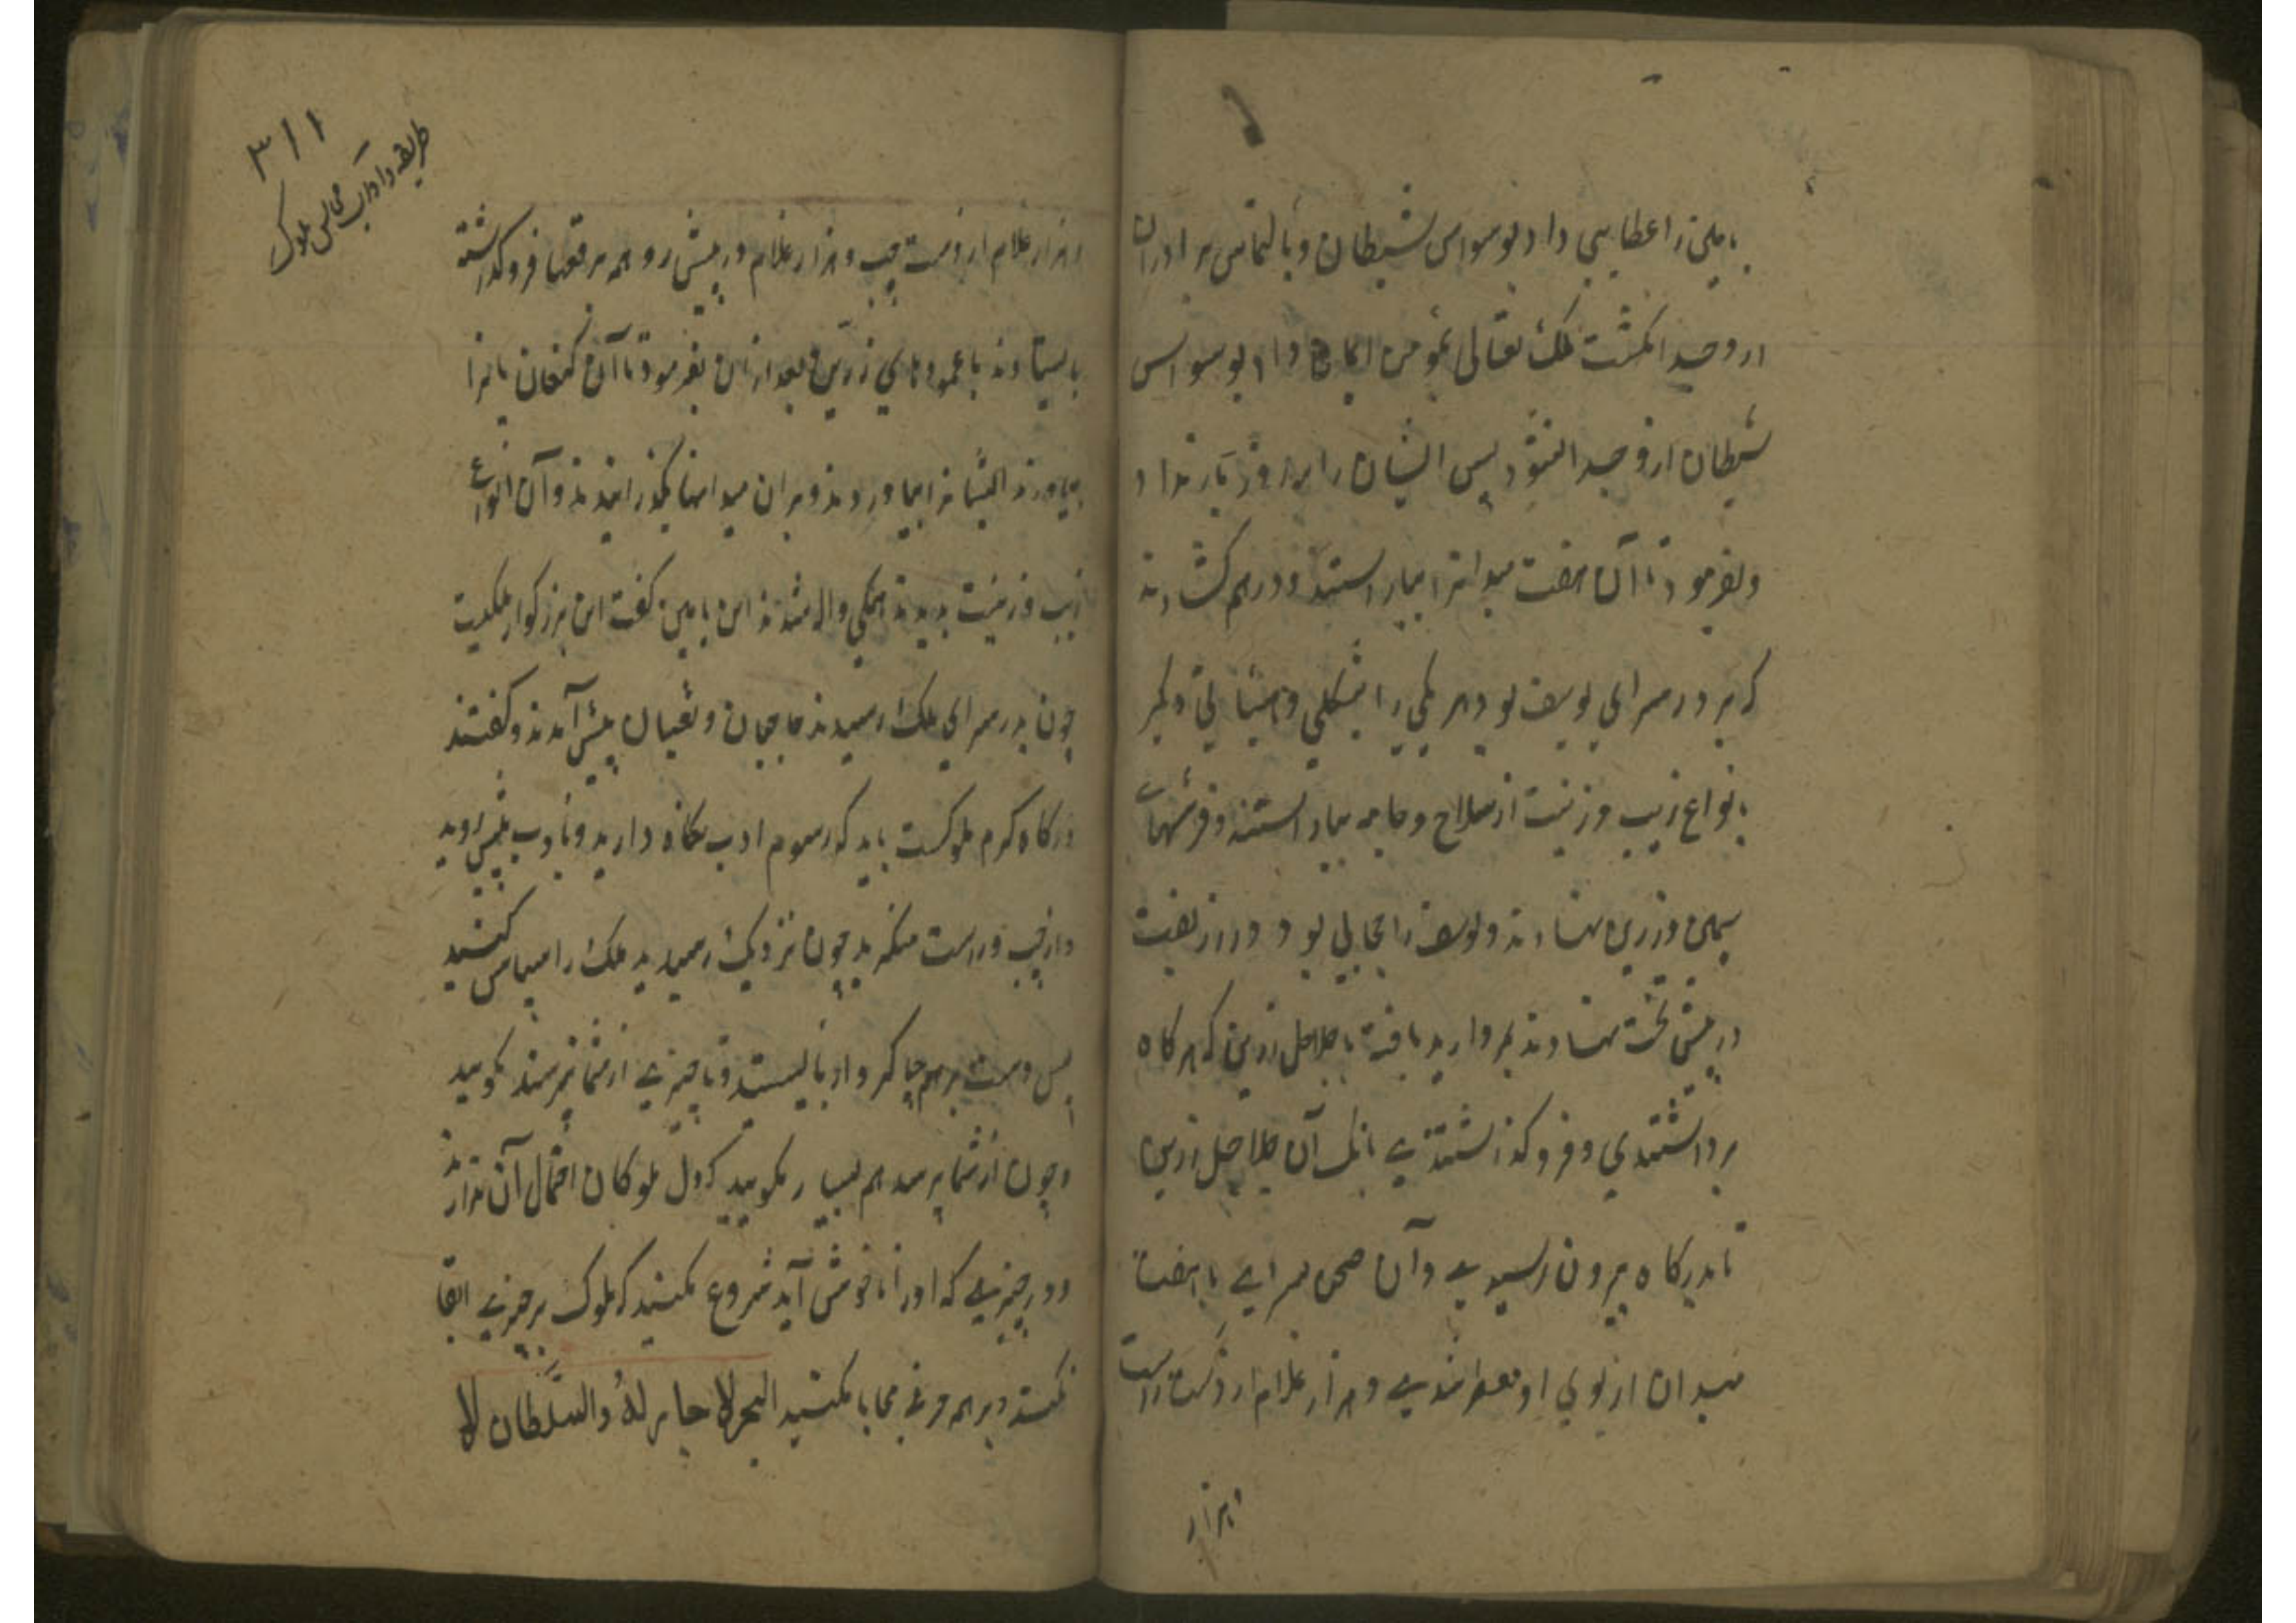 بامین را عطایی داد بوسواس شیطان و بالتماس برادران
ازو جدا نکشت ملک تعالی بمومن ایمان داد بوسواس
شیطان ازو جدا نشود پس ایشان را سه روز بار نداد
و بفرمود تا آن هفت میدانرا بیاراستند و درهم کشادند
که بر در سرای یوسف بود هر یکی را بشکلی و هیئاتی دیگر
بانواع زیب و زینت از سلاح و جامه بیاراستند و فرشهاء
سیمین و زرین نهادند و یوسف را حجابی بود در زربفت
در پیش تخت نهادند بمروارید بافته با جلاجل زرین که هرکاه
برداشتندی و فروکذاشتندی بانک آن جلاجل زرین
تا بدرکاه بیرون رسیدی و آن صحن سرای با هفت
میدان از بوی او معطر شدی و هزار غلام از دست راست
و هزار
۳۱۱
طریقه و آداب مجالس ملوک
و هزار غلام از دست چپ و هزار غلام در پیش رو همه برقعها فروکذاشته
بایستادند با عمودهای زرین و بعد از آن بفرمود تا آن کنعانیانرا
بیاورند ایشانرا بیاوردند و بران میدانها بکذرانیدند و آن انواع
زیب و زینت بدیدند همکی واله شدند ابن یامین کفت این بزرکوار ملکیست
چون بدر سرای ملک رسیدند حاجبان و نقیبان پیش آمدند و کفتند
درکاه کرم ملوکست باید که رسوم ادب نکاه دارید و بادب پیش روید
و از چپ و راست منکرید چون نزدیک رسیدید ملک را سپاس کنید
پس دست برهم چاکروار بایستید و تا چیزی از شما نپرسند مکویید
و چون از شما پرسد هم بسیار مکویید که دل ملوکان احتمال آن ندارد
و در چیزی که او را ناخوش آید شروع مکنید که ملوک بر چیزی ابقا
نکنند و بر هم حرفی محابا مکنید البحر لا جار له والسلطان لا